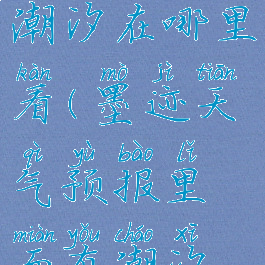 潮汐在哪里
kàn mò jì tiān
看(墨迹天
qì yù bào lǐ
气预报里
miàn yǒu cháo xī
面有潮汐